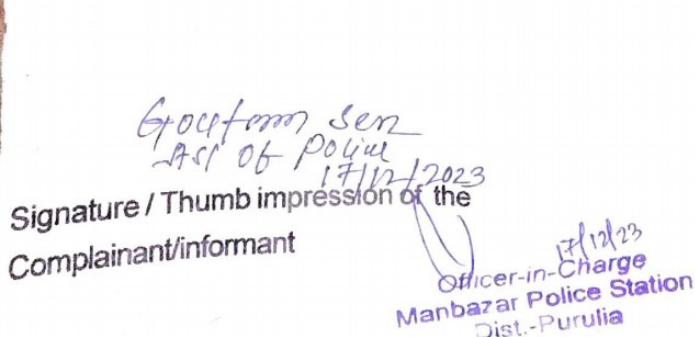 Goutam Sen
ASI of Police
17/12/2023
Signature / Thumb impression of the
Complainant/informant
17/12/23
Officer-in-Charge
Manbazar Police Station
Dist.-Purulia